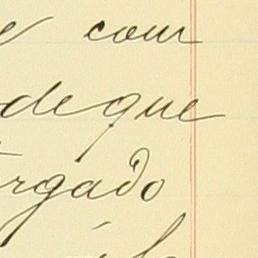 com
de que
rgado